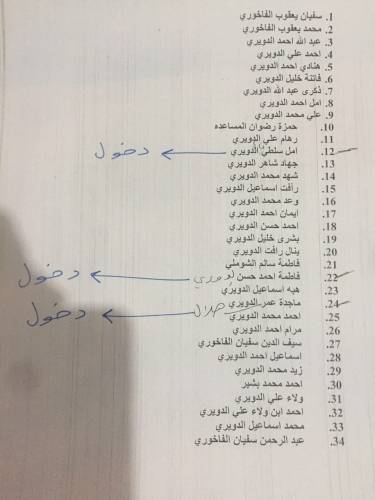 1. سفيان يعقوب الفاخوري
2. محمد يعقوب الفاخوري
3. عبد الله احمد الدويري
4. احمد علي الدويري
5. هنادي احمد الدويري
6. فاتنة خليل الدويري
7. ذكرى عبد الله الدويري
8. امل احمد الدويري
9. علي محمد الدويري
10. حمزة رضوان المساعده
11. رهام علي الدويري
12. امل سلطي الدويري دخول
13. جهاد شاهر الدويري
14. شهد محمد الدويري
15. رأفت اسماعيل الدويري
16. وعد محمد الدويري
17. ايمان احمد الدويري
18. احمد حسن الدويري
19. بشرى خليل الدويري
20. ينال رافت الدويري
21. فاطمة سالم الشوملي
22. فاطمة احمد حسن دخول
23. هبه اسماعيل الدويري
24. ماجدة عمر الدويري دخول
25. احمد محمد الدويري
26. مرام احمد الدويري
27. سيف الدين سفيان الفاخوري
28. اسماعيل احمد الدويري
29. زيد محمد الدويري
30. احمد محمد بشير
31. ولاء علي الدويري
32. احمد ابن ولاء علي الدويري
33. محمد اسماعيل الدويري
34. عبد الرحمن سفيان الفاخوري